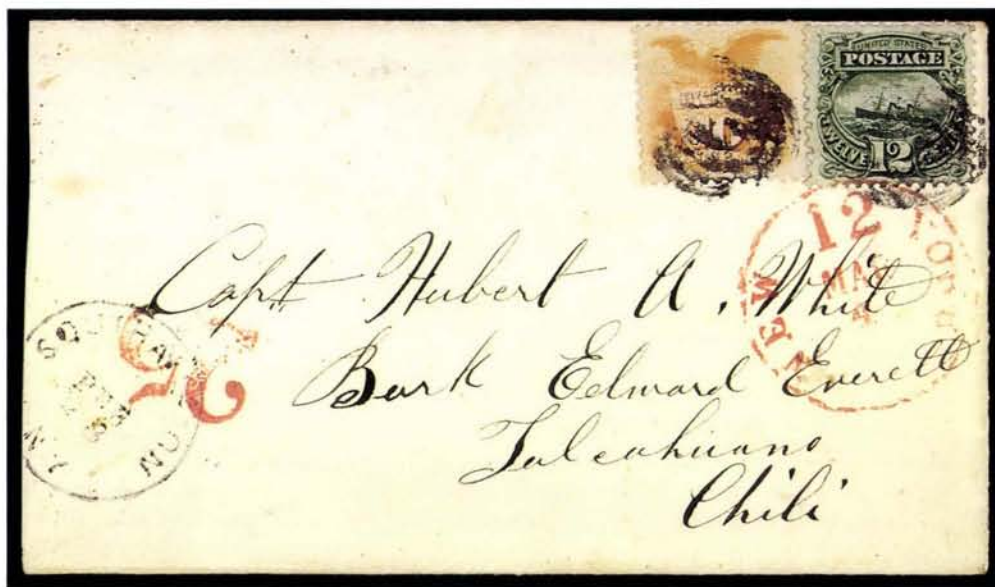 UNITED STATES
POSTAGE
TWELVE 12 CENTS
12
NEW YORK
MAY
4
Capt. Hubert A. White
Bark Edward Everett
Talcahuano
Chili
25
SOUTHAMPTON
N.Y.